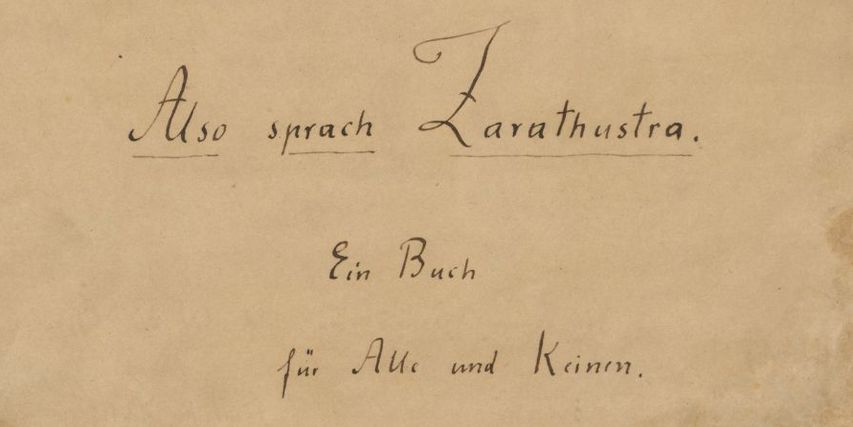 Also sprach Zarathustra.
Ein Buch
für Alle und Keinen.